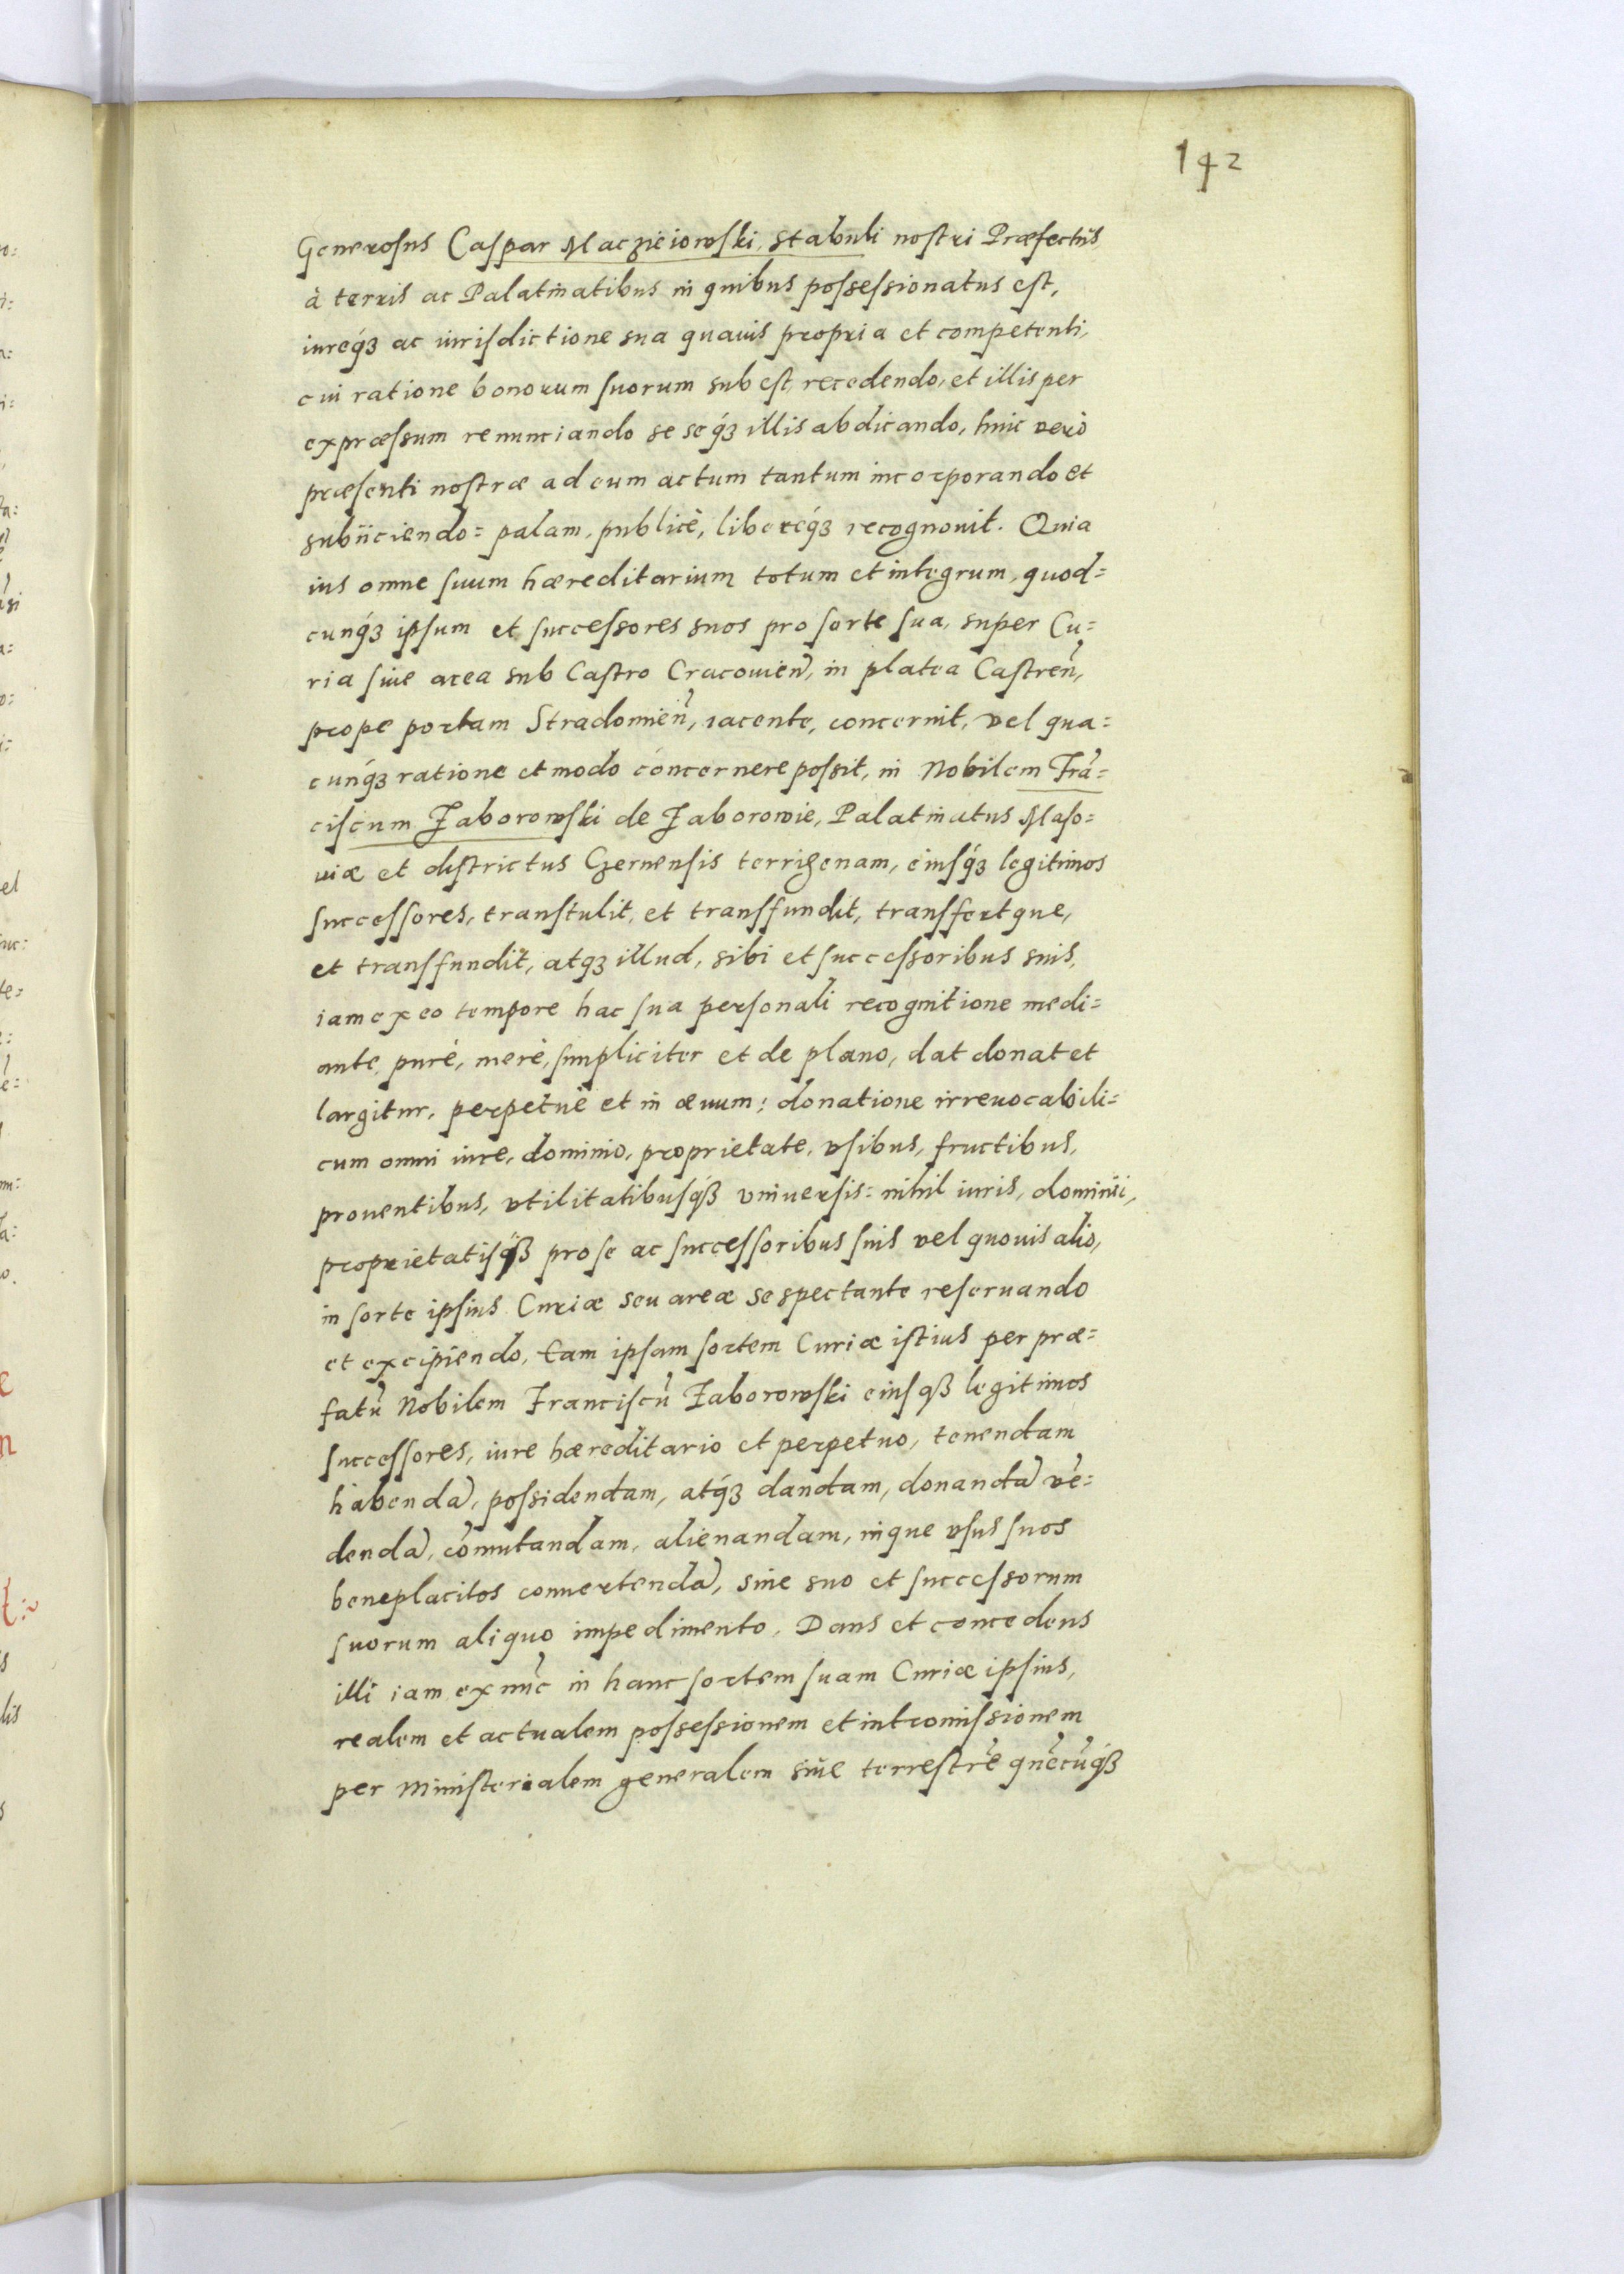 142
Generosus Caspar Maczieiowski, stabuli nostri Præfectus
à terris ac Palatinatibus in quibus possessionatus est,
iureq́ꝫ ac iurisdictione sua quauis propria et competenti,
cui ratione bonorum suorum subest recedendo, et illis per
expræssum renunciando se seq́ꝫ illis abdicando, huic verò
præsenti nostræ ad eum actum tantum incorporando et
subiiciendo= palam, publicè, libereq́ꝫ recognouit. Quia
ius omne suum hæreditarium totum et integrum, quod=
cunq́ꝫ ipsum et successores suos pro sorte sua, super Cu=
ria siue area sub Castro Cracouien̄, in platea Castren̄,
prope portam Stradomien̄, iacente, concernit, vel qua=
cunq́ꝫ ratione et modo concernere possit, in Nobilem Frā=
ciscum Zaborowski de Zaborowie, Palatinatus Maso=
uiæ et districtus Czernensis terrigenam, eiusq́ꝫ legitimos
successores, transtulit, et transfundit, transfertque,
et transfundit, atqꝫ illud, sibi et successoribus suis,
iam ex eo tempore hac sua personali recognitione medi=
ante, purè, merè, simpliciter et de plano, dat donat et
largitur, perpetuè et in æuum: donatione irreuocabili=
cum omni iure, dominio, proprietate, vsibus, fructibus,
prouentibus, vtilitatibusq́ꝫ vniuersis= nihil iuris, dominii,
proprietatisqꝫ pro se ac successoribus suis vel quouis alio,
in sorte ipsius Curiæ seu areæ se spectante reseruando
et excipiendo, Eam ipsam sortem Curiæ istius per præ=
fatū Nobilem Franciscū Zaborowski eiusqꝫ legitimos
successores, iure hæreditario et perpetuo, tenendam
habendā, possidendam, atq́ꝫ dandam, donandā vē=
dendā, cōmutandam, alienandam, inque vsus suos
beneplacitos conuertendā, sine suo et successorum
suorum aliquo impedimento. Dans et concedens
illi iam ex nūc in hanc sortem suam Curiæ ipsius,
realem et actualem possessionem et intromissionem
per Ministerialem generalem siue terrestrē quēcūqꝫ